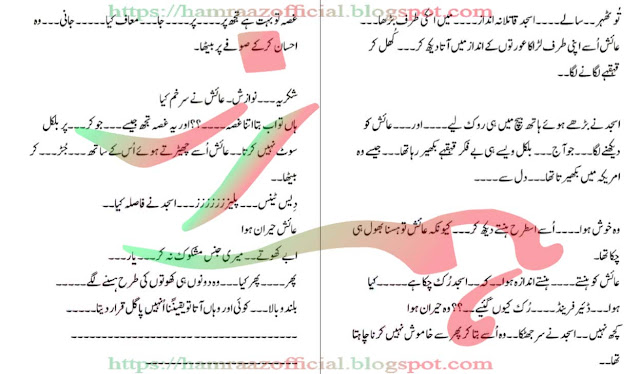 https://hamraazofficial.blogspot.com
تُو ٹھہر۔۔ سالے۔۔۔۔ اسجد قاتلانہ انداز۔۔۔۔ میں اسکی طرف بڑھا۔۔۔
عائش اُسے اپنی طرف لڑاکا عورتوں کے انداز میں آتا دیکھ کر۔۔۔ کُھل کر
قہقہے لگانے لگا۔۔
اسجد نے بڑھے ہوئے ہاتھ بیچ میں ہی روک لیے۔۔۔۔ اور۔۔۔ عائش کو
دیکھنے لگا۔۔۔ جو آج۔۔۔ بلکل ویسے ہی بے فکر قہقہے بکھیر رہا تھا۔۔۔ جیسے وہ
امریکہ میں بکھیرتا تھا۔۔۔ دل سے۔۔۔۔
وہ خوش ہوا۔۔۔۔ اُسے اسطرح ہنستے دیکھ کر۔۔۔ کیونکہ عائش تو ہسنا بھول ہی
چکا تھا۔
عائش کو ہنستے۔۔۔۔ ہنستے اندازہ ہوا۔۔ کہ۔۔۔ اسجد رُک چکا ہے۔۔۔۔ کیا
ہوا۔۔۔ ڈئیر فرینڈ۔۔۔۔ رُک کیوں گئیے۔۔؟؟ وہ حیران ہوا
کچھ نہیں۔۔ اسجد نے سر جھٹکا۔۔ وہ اُسے بتا کر پھر سے خاموش نہیں کرنا چاہتا
تھا۔۔
غصہ تو بہت ہے تجھ پر۔۔۔۔ پر۔۔۔۔ جا۔۔۔ معاف کیا۔۔۔۔۔ جانی۔۔۔ وہ
احسان کر کے صوفے پر بیٹھا۔
شکریہ۔۔۔ نوازش۔ عائش نے سر خم کیا
ہاں تو اب بتا اتنا غصہ۔۔۔۔؟؟؟ اور یہ غصہ تجھ جیسے۔۔۔ جو کر۔۔۔ پر بلکل
سوٹ نہیں کرتا۔۔ عائش اُسے چھیڑتے ہوئے اُس کے ساتھ۔۔۔ جُڑ۔۔۔ کر
بیٹھا۔۔
دِیس ٹینس۔۔۔ پلیززززززز۔۔۔ اسجد نے فاصلہ کیا۔۔
عائش حیران ہوا
ابے کھوتے۔۔ میری جنس مشکوک نہ کر۔۔۔ یار۔۔۔
پھر۔۔۔۔ پھر کیا۔۔۔ وہ دونوں ہی کھوتوں کی طرح ہسنے لگے۔۔۔۔۔
بلند و بالا۔۔۔ کوئی اور وہاں آتا تو یقیننا اُنہیں پاگل قرار دیتا۔۔۔۔۔
https://hamraazofficial.blogspot.com